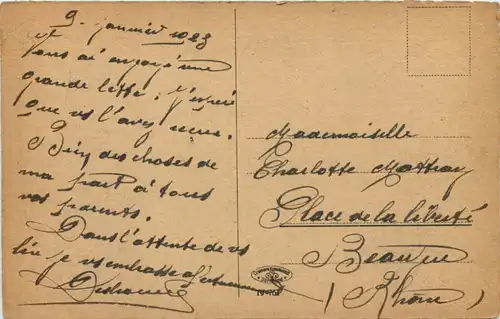 9 janvier 1923
Je
vous ai envoyé une
grande lettre, j'espère
que vs l'avez reçue.
Bien des choses de
ma part à tous
vos parents.
Dans l'attente de vs
lire je vs embrasse affectueusement
Mademoiselle
Charlotte
Place de la liberté
Beaujeu
(Rhône)